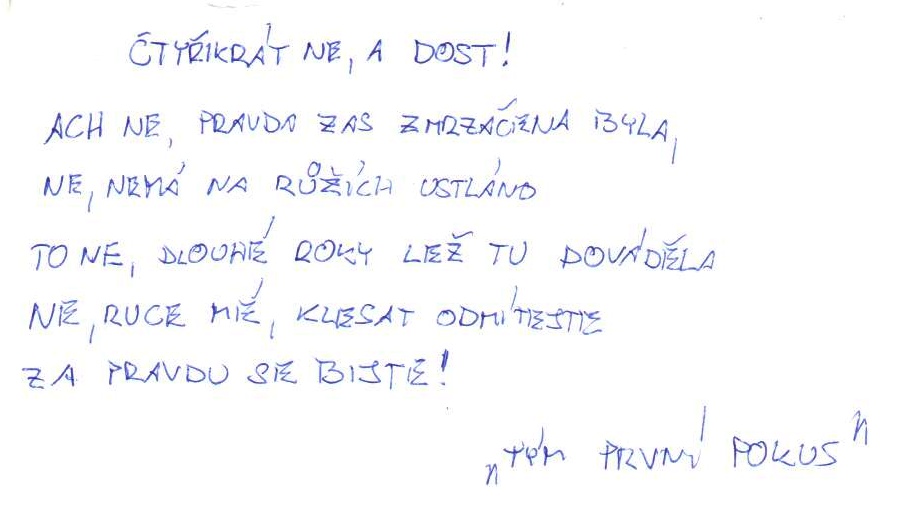 ČTYŘIKRÁT NE, A DOST!
ACH NE, PRAVDA ZAS ZMRZAČENA BYLA,
NE, NEMÁ NA RŮŽÍCH USTLÁNO
TO NE, DLOUHÉ ROKY LEŽ TU DOVÁDĚLA
NE, RUCE MÉ, KLESAT ODMÍTEJTE
ZA PRAVDU SE BIJTE!
„TÝM PRVNÍ POKUS"